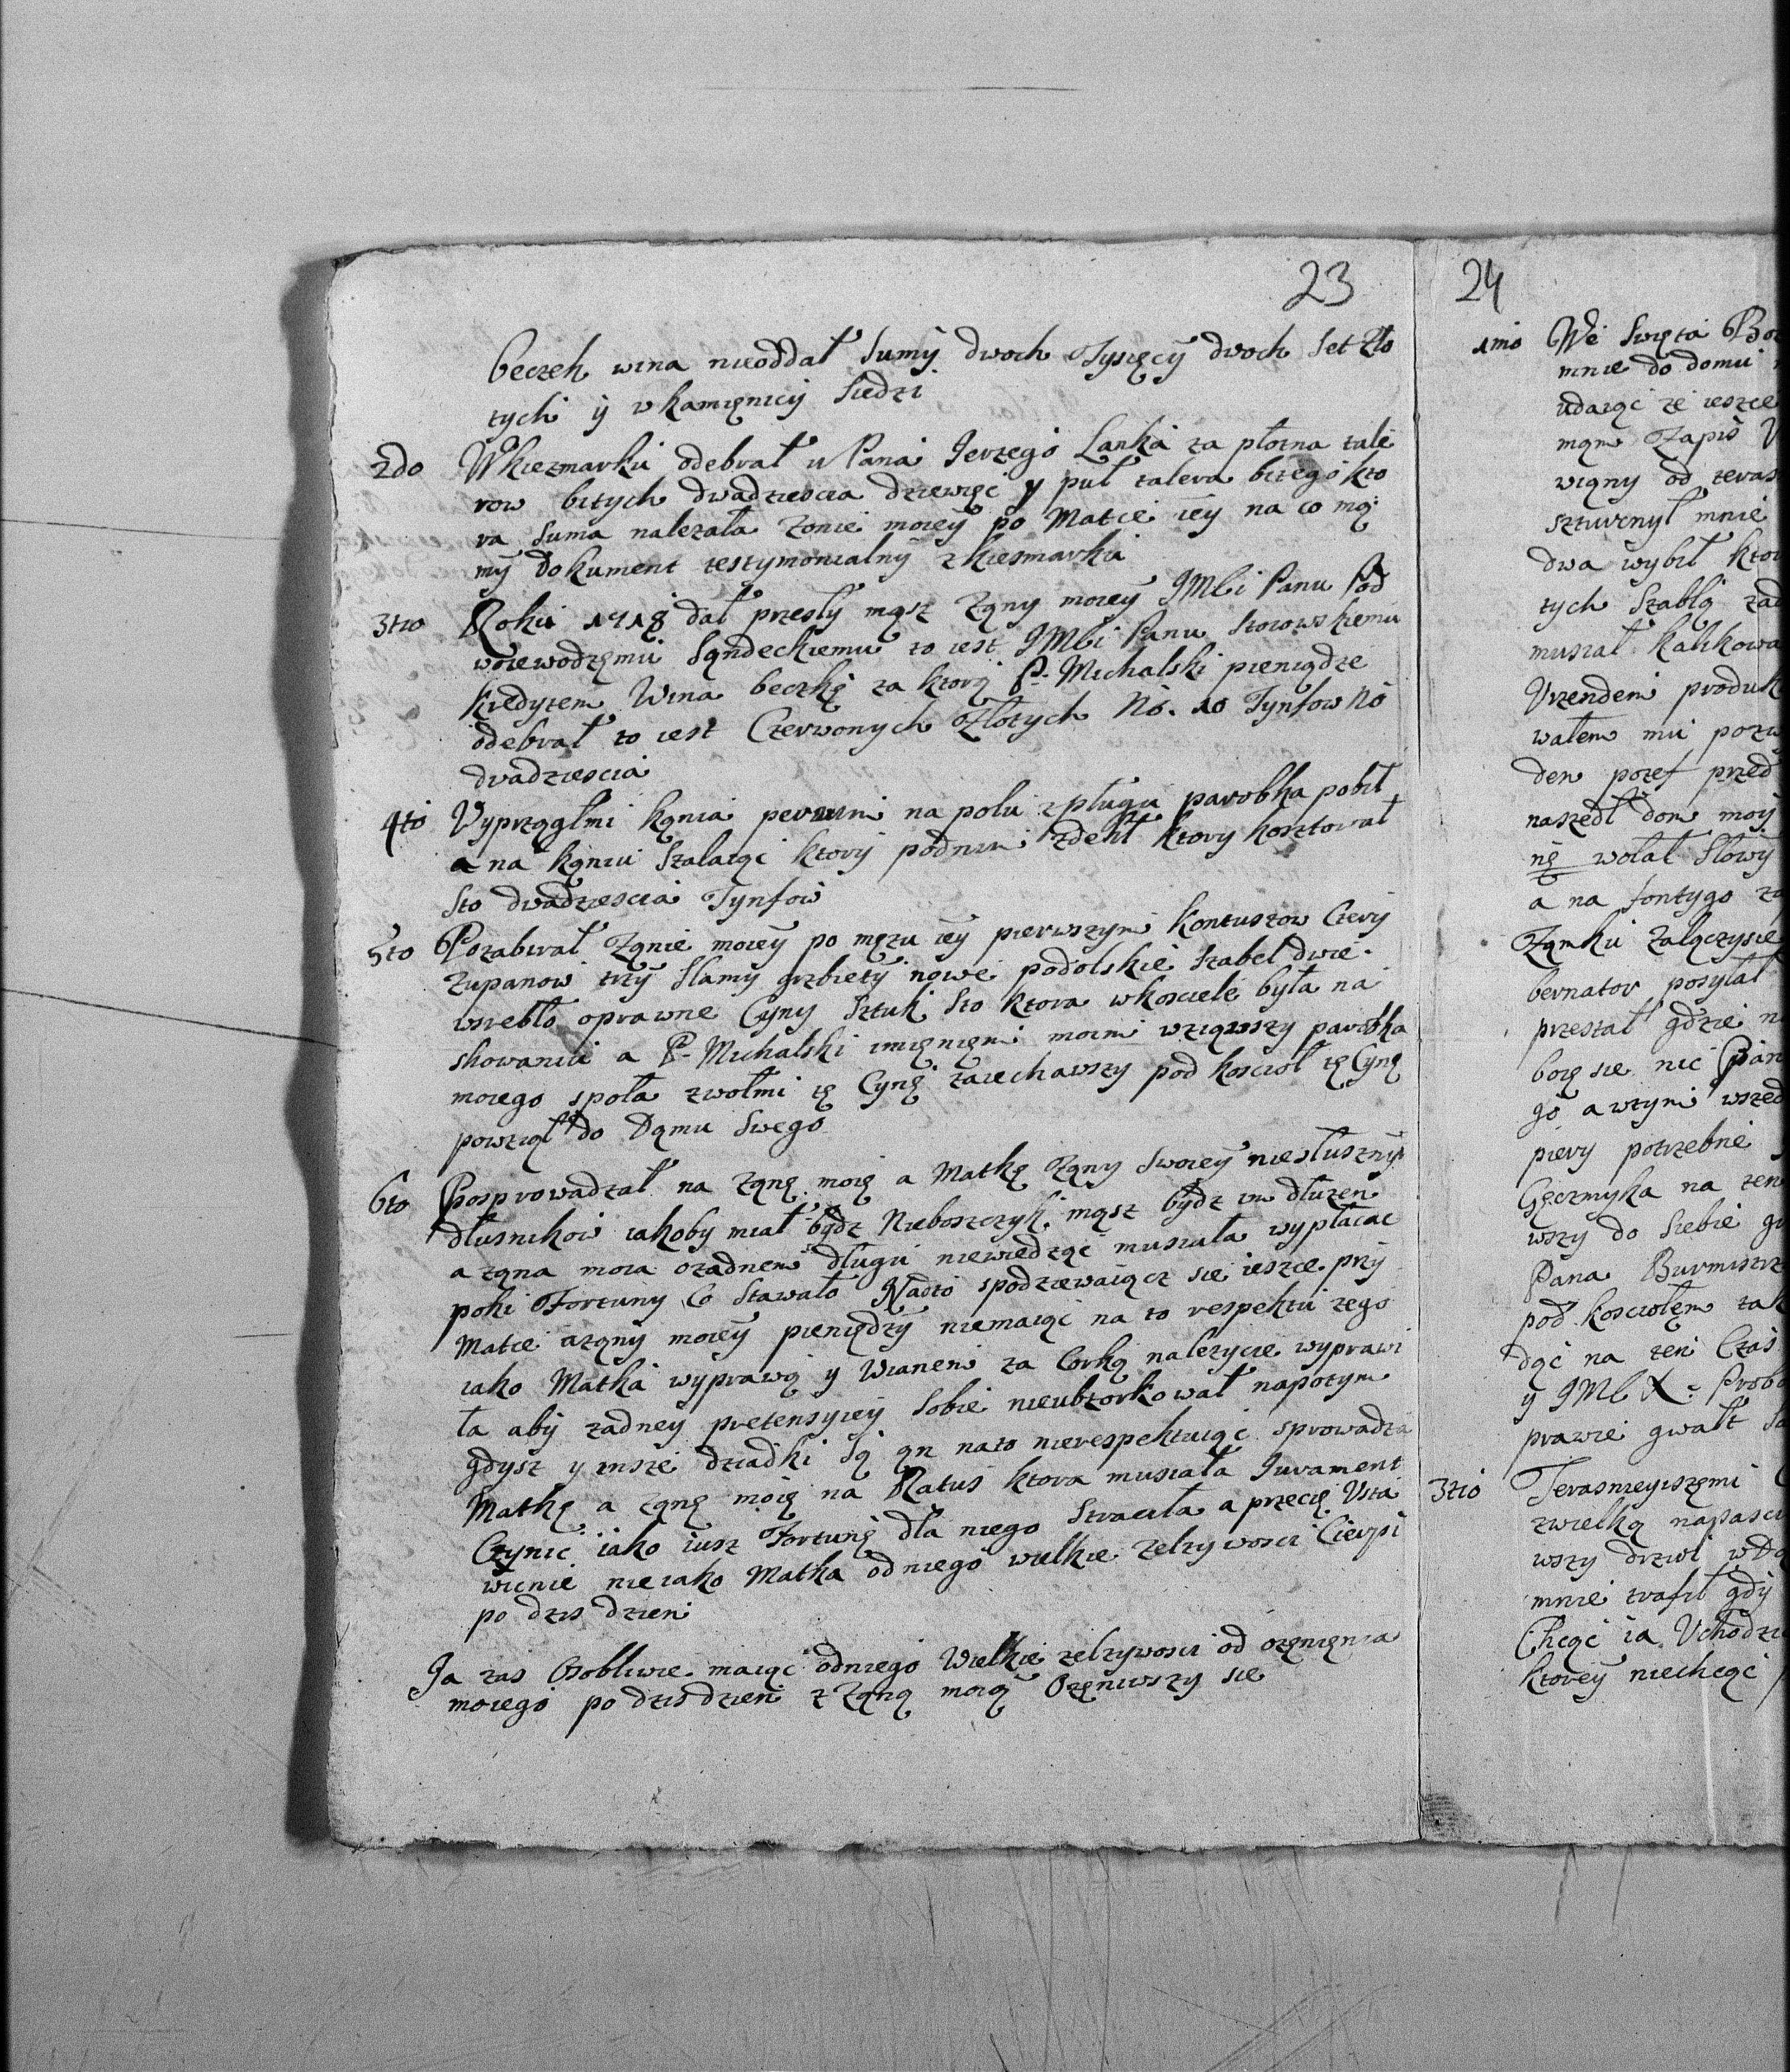 23
beczek wina nieoddał Sumÿ dwoch Tysięcÿ dwoch Set Zło
tych ÿ wkamięnicÿ Siedzi
2do Wkiezmarku odebrał u Pana Jerzego Lanka za płotna tale
row bitych dwadziescia dziewięć y puł talera bitego kto
ra Suma nalezała Zonie moieÿ po Matce ieÿ na co mą
mÿ Dokument testymonialnÿ zkiesmarku
3tio Roku 1718 dał przesłÿ mąsz Zqny moieÿ JMCi Panu Pod
woiewodzęmu Sqndeckiemu to iest JMCi Panu Stoiowskiemu
kredytem Wina beczkę za ktorą P. Michalski pieniądze
odebrał to iest Czerwonych Złotych No. 10 Tynfow No
dwadziescia
4to Vyprzągłmi kqnia perum na polu zpługu parobka pobił
a na kqniu Szalaiąc ktorÿ podnim zdehł ktory kosztował
Sto dwadziescia Tynfow
5to Pozabirał Zqnie moieÿ po męzu ieÿ pierwszym kontuszow Cterÿ
Zupanow trzÿ Slamÿ grzbietÿ nowe podolskie Szabel dwie
wsrebło oprawne Cyny Sztuk Sto ktora wkosciele była na
skowaniu a P. Michalski imięnięm moim wziąwszy parobka
moiego społa zwołmi tę Cynę zaiechawszy pod kosciół tę Cynę
powziął do Dqmu Swego
6to Posprowadzał na Zqnę moię a Matkę Zqny Swoieÿ niesłusznÿ
dłusnikow iakoby miał bÿdz Nieboszczyk mąsz bÿdz im dłuzen
a zqna moia ozadnem długu niewiedząc musiała wypłacac
poki Fortuny Co Stawało Nadto spodziewaiącz sie ieszce prÿ
Matce azqny moieÿ pieniędzÿ niemaiąc na to respektu zego
iako Matka wyprawą y Wianem za Corką nalezycie wyprawi
ła abÿ zadney pretensyieÿ Sobie nieubzorkował napotym
gdysz y insze dziadki Są qn nato nierespektuiąc sprowadza
Matkę a Zqnę moię na Ratus ktora musiała Jurament
Czynic iako iusz Fortunę dla niego Straciła a przecię Vsta
wicnie nieiako Matka odniego wielkie zelzywosci Cierpi
po dzis dzien
Ja zas Osobliwie maiąc odniego Wielkie zelzywosci od ozęnięnia
moiego po dzis dzien z Zqną moią Ozęniwszy sie
24
1mo We Swięta Boz
mnie do domu
udaiąc ze ieszce
mqm Zapis V
wiqny od teras
szturcnył mnie
dwa wybił ktor
tych Szablą zad
musiał kalikowa
Vrzendem produk
wałem mu pozw
den pozef przed
naszedł dom moÿ
nę wołał Słowÿ
a na Fontygo za
Zqmku Zalączysie
bernator posyłał
przestał gdzie n
boię sie nic Pan
go awtym wszed
piery potrzebne
Gęczmyka na ten
wszy do Siebie
Pana Burmistrz
pod kosciołęm tak
dąc na ten Czas
y JMC X: Probo
prawie gwałt
3tio Terasnieyszęmi
zwielką napasci
wszy drzwi wDq
mnie trafił gdÿ
Chcąc ia Vchodzi
ktoreÿ niechcąc